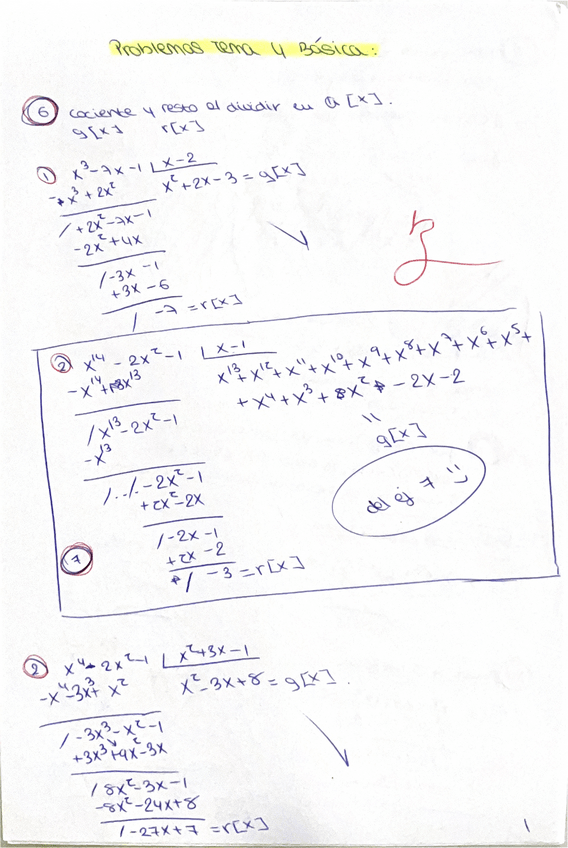 Problemas Tema 4 Básica:
6 cociente y resto al dividir en Q[x].
g[x] r[x]
1 x³-7x-1 | x-2
-x³+2x² x²+2x-3 = g[x]
/+2x²-7x-1
-2x²+4x
/-3x-1
+3x-6
/ -7 = r[x]
2 x¹⁴-2x²-1 | x-1
-x¹⁴+x¹³ x¹³+x¹²+x¹¹+x¹⁰+x⁹+x⁸+x⁷+x⁶+x⁵+
/x¹³-2x²-1 +x⁴+x³+x²-2x-2
-x¹³ =
g[x]
/../-2x²-1
+2x²-2x
del ej 7 =)
/-2x-1
+2x-2
7 / -3 = r[x]
2 x⁴-2x²-1 | x²+3x-1
-x⁴-3x³+x² x²-3x+8 = g[x].
/-3x³-x²-1
+3x³+9x²-3x
/8x²-3x-1
-8x²-24x+8
/-27x+7 = r[x]
1